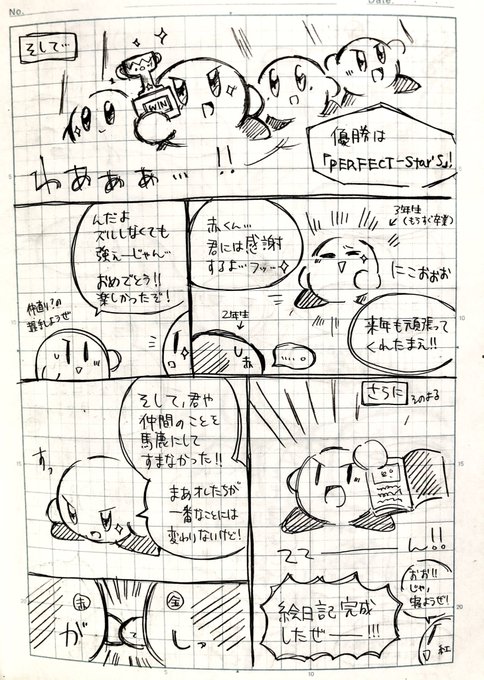 No.
Date.
そして…
WIN
優勝は
「PERFECT-Star'S」!
わあぁぁぁ…!!
3年生
(もうすぐ卒業)
赤くん…
君には感謝
するよ…フッ…
にこおおお
来年も頑張って
くれたまえ!!
2年生
しあ
んだよ
ズルしなくても
強ぇーじゃん…
おめでとう!!
楽しかったぞ!
仲直り?の
握手しようぜ
そして、君や
仲間のことを
馬鹿にして
すまなかった!!
まあオレたちが
一番なことには
変わりないけど!
すっ
赤
金
がしっ
さらに
そのまる
ててーーん!!
絵日記完成
したぜ──!!!
おお!!
じゃ、
寝ようぜ!
紅